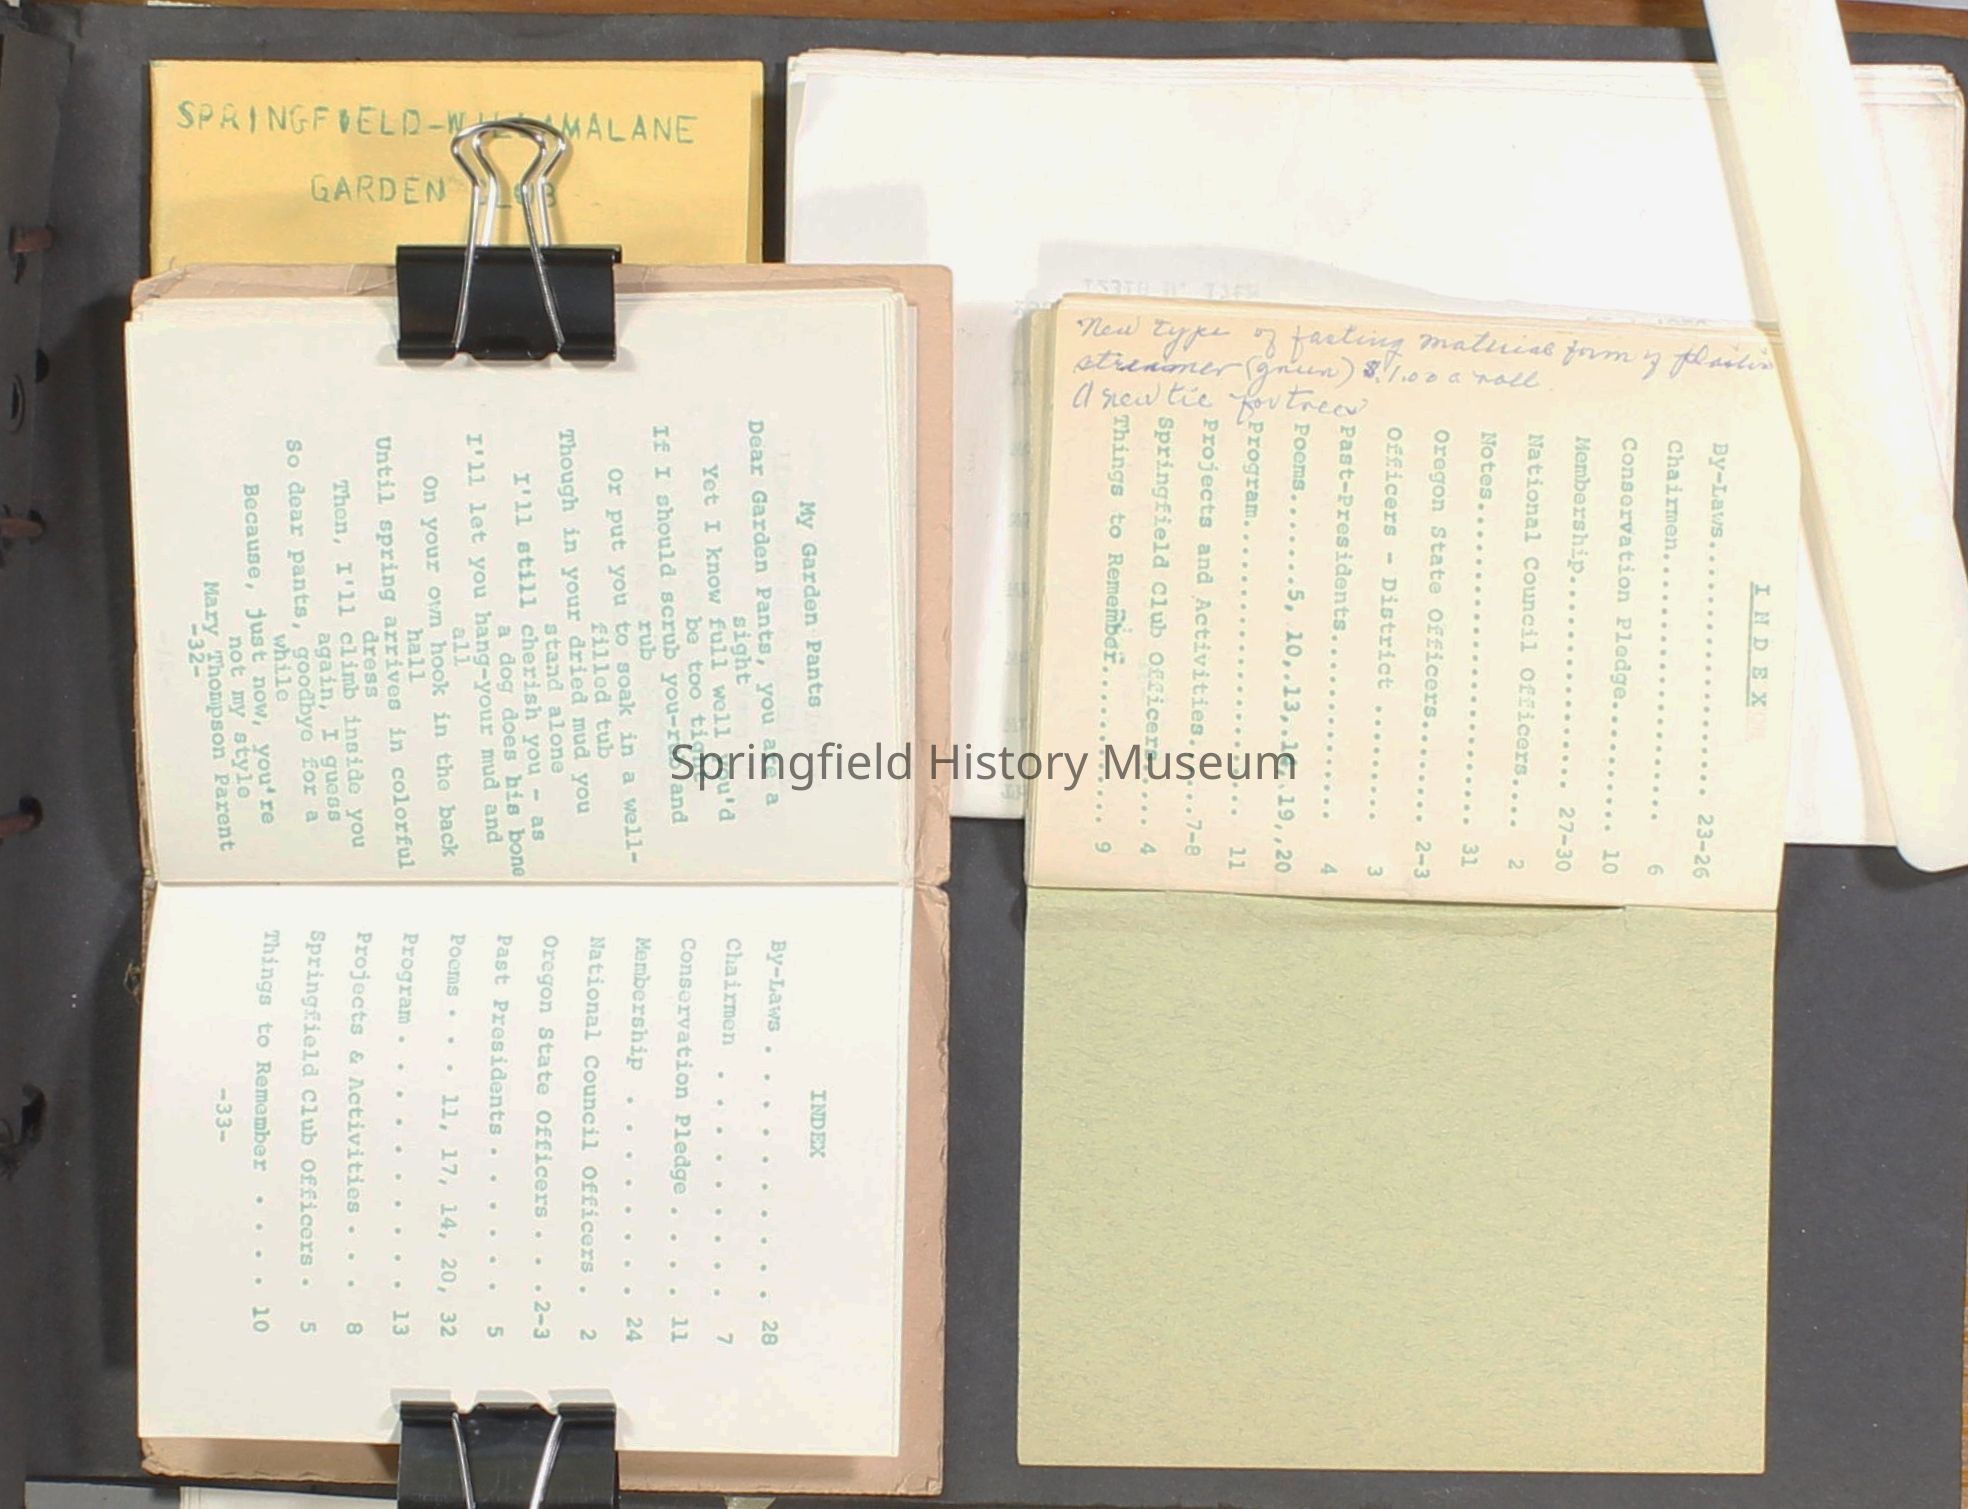 SPRINGFIELD-WILLAMALANE
GARDEN CLUB
My Garden Pants
Dear Garden Pants, you are a
sight
Yet I know full well you'd
be too tight
If I should scrub you-rub and
rub
Or put you to soak in a well-
filled tub
Though in your dried mud you
stand alone
I'll still cherish you - as
a dog does his bone
I'll let you hang-your mud and
all
On your own hook in the back
hall
Until spring arrives in colorful
dress
Then, I'll climb inside you
again, I guess
So dear pants, goodbye for a
while
Because, just now, you're
not my style
Mary Thompson Parent
-32-
INDEX
By-Laws . . . . . . . . . . 28
Chairmen . . . . . . . . . 7
Conservation Pledge . . . . 11
Membership . . . . . . . . 24
National Council Officers . 2
Oregon State Officers . . . 2-3
Past Presidents . . . . . . 5
Poems . . . 11, 17, 14, 20, 32
Program . . . . . . . . . . 13
Projects & Activities . . . 8
Springfield Club Officers . 5
Things to Remember . . . . 10
-33-
New type of fasting material form of plastic
streamer (green) $1.00 a roll
A new tie for trees
INDEX
By-Laws...................... 23-26
Chairmen..................... 6
Conservation Pledge.......... 10
Membership................... 27-30
National Council Officers.... 2
Notes........................ 31
Oregon State Officers........ 2-3
Officers - District ......... 3
Past-Presidents.............. 4
Poems........5, 10, 13, 16, 19, 20
Program...................... 11
Projects and Activities......7-8
Springfield Club Officers.... 4
Things to Remember........... 9
Springfield History Museum